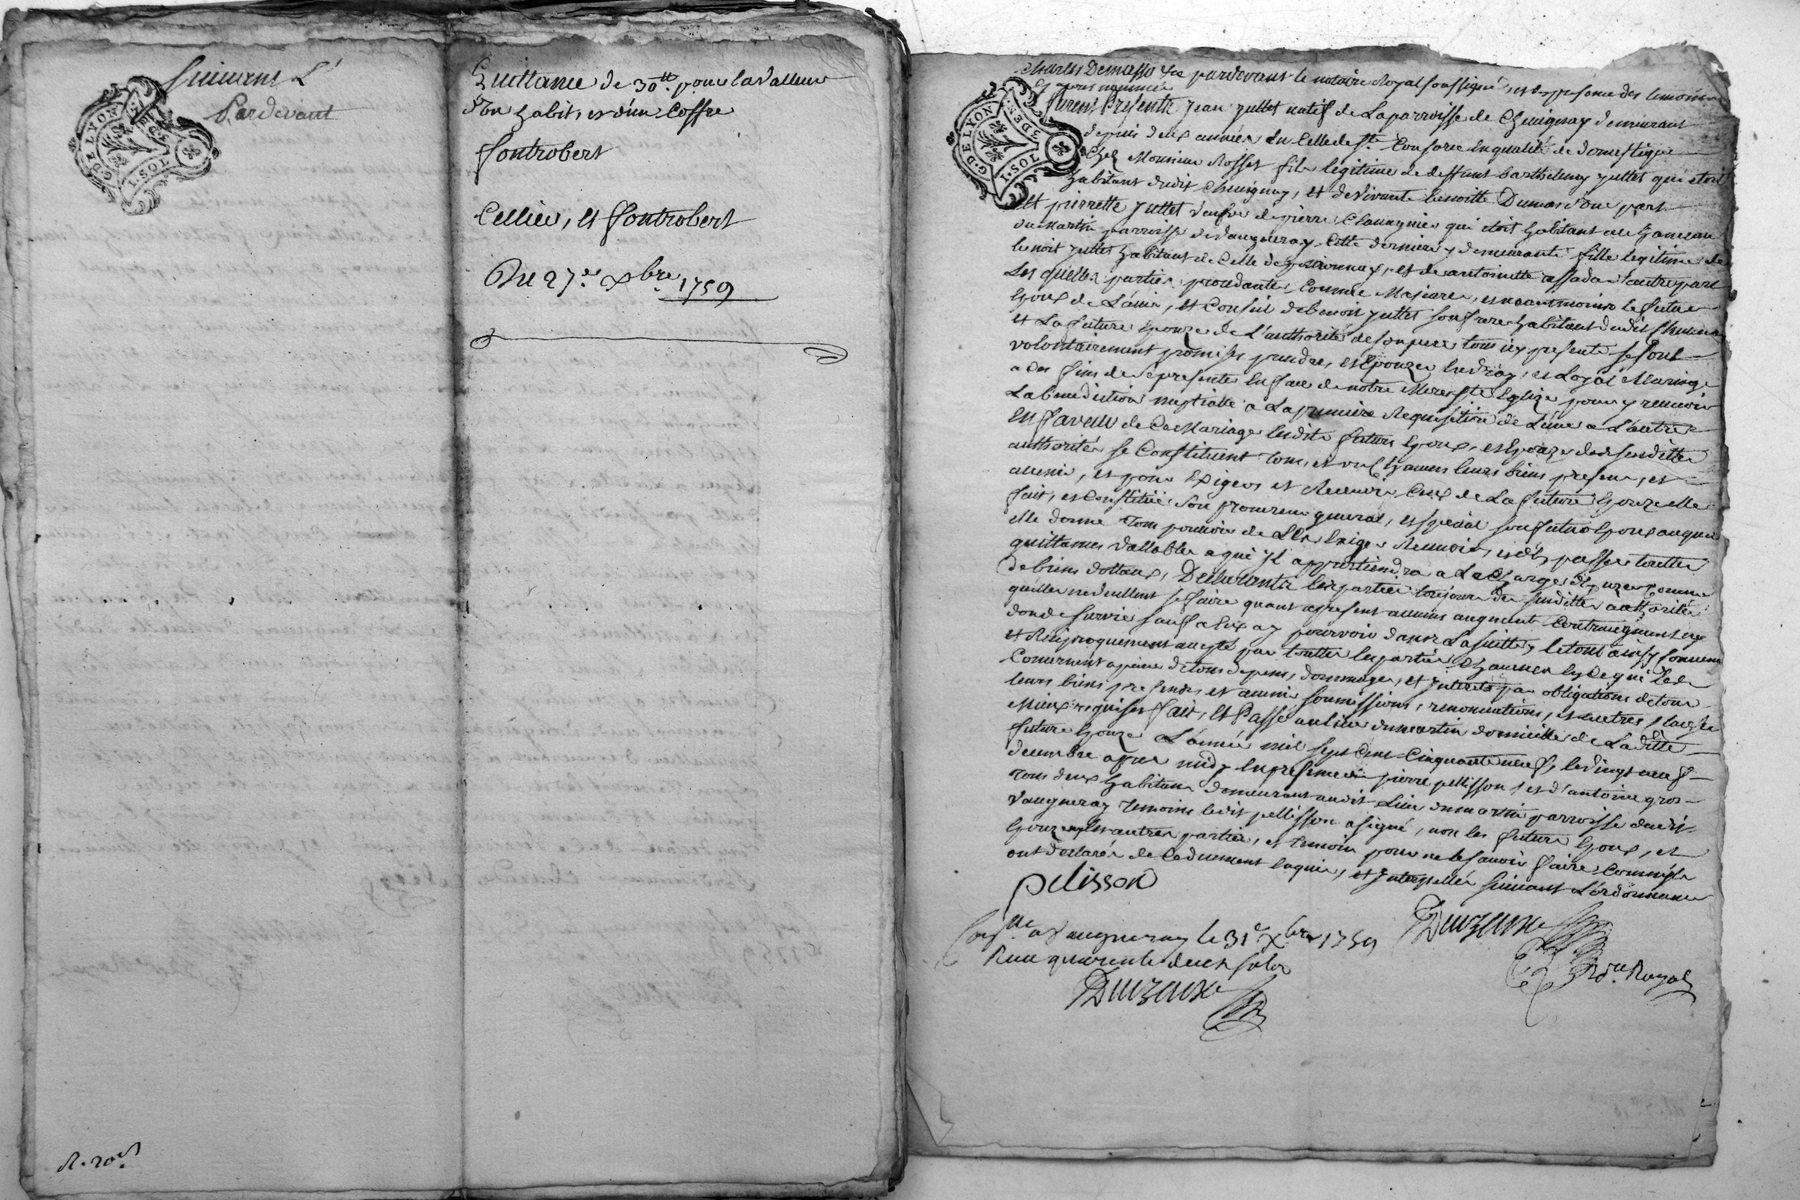 Suivant L'
Pardevant
G. DE LYON
1. SOL
DE
Quittance de 30tt. pour la Valleur
d'un habit, et d'un Coffre
fontrobert
Cellier, et fontrobert
Du 27.e xbre 1759
R. 20s
G. DE LYON
1. SOL
DE
Charles Demasso &ca pardevant le notaire Royal soussigné, et en presence des temoins
cy apres nommés
furent Presents Jean Jullet natif de La parroisse de Chevignay demeurant
depuis deux années en Celle de Ste. Consorce en qualité de domestique
Chez Monsieur Rosset fils legitime de deffunt barthelemy Jullet qui étoit
habitant dudit Chevignay, et de Vivante benoitte Dumas d'une part
Et pierrette Jullet veufve de pierre Clavagnie qui etoit habitant au hameau
du martin parroisse de Vaugneray, Cette derniere y demeurante fille legitime de
benoit Jullet habitant de Celle de et de antoinette assada d'autre part
Les quelles parties procedantes Comme Majeure, et neantmoins le futur
Epoux de L'avis, et Conseil de benoit Jullet son frere habitant dudit Chevignay
et La future Epouze de L'authorité de son pere tous icy presents se sont
volontairement promis prendre, et Epouzer en vray, et Loyal Mariage
a Ces fins de se presenter En face de notre Mere Ste Eglize pour y recevoir
La benediction nuptialle a La premiere Requisition de L'une a L'autre
En faveur de Ce Mariage lesdits futurs Epoux, et Epouze de de susditte
authorité se Constituent tous, et uns Chacuns leurs biens presents, et
avenir, et pour Exiger et Recevoir Ceux de La future Epouze elle
fait, et Constitue son procureur general, et special son futur Epoux auquel
elle donne tout pouvoir de Les Exiger Recevoir, et d'en passer toutte
quittances vallables a qui il appartiendra a La Charge d'en user Comme
de biens dottaux, Declarants les parties toujours de susditte authorité
quelles ne veullent se faire quant a present aucuns augment Contraugment ny
don de survie sauf a Eux a y pourvoir dans La suitte, le tout ainsy Convenu
et Reciproquement accepté par touttes les parties Chacune En Ce qui les
Concernent a peine de tous depens, dommages, et interets par obligations de tous
leurs biens presents et avenir soumissions, renonciations, et autres Clauzes
Mieux requises fait, Et Passé au lieu du martin domicille de Laditte
future Epouze L'année mil sept Cent Cinquante neuf, le vingt neuf
decembre apres midy En presence de pierre pellisson, et d'antoine gros
tous deux habitans demeurant audit Lieu du martin parroisse dudit
Vaugneray temoins ledit pellisson a signé, non les futurs Epoux, et
Epouze, les autres parties, et temoin pour ne le savoir faire Comme ils
ont declarés de Ce duement Enquis, et Interpellés suivant L'ordonnance
pelisson
Con.lle a Vaugneray le 31e xbre 1759
Reçu quarente deux sols
Duvzeux
Duvzeux
Nre. Royal